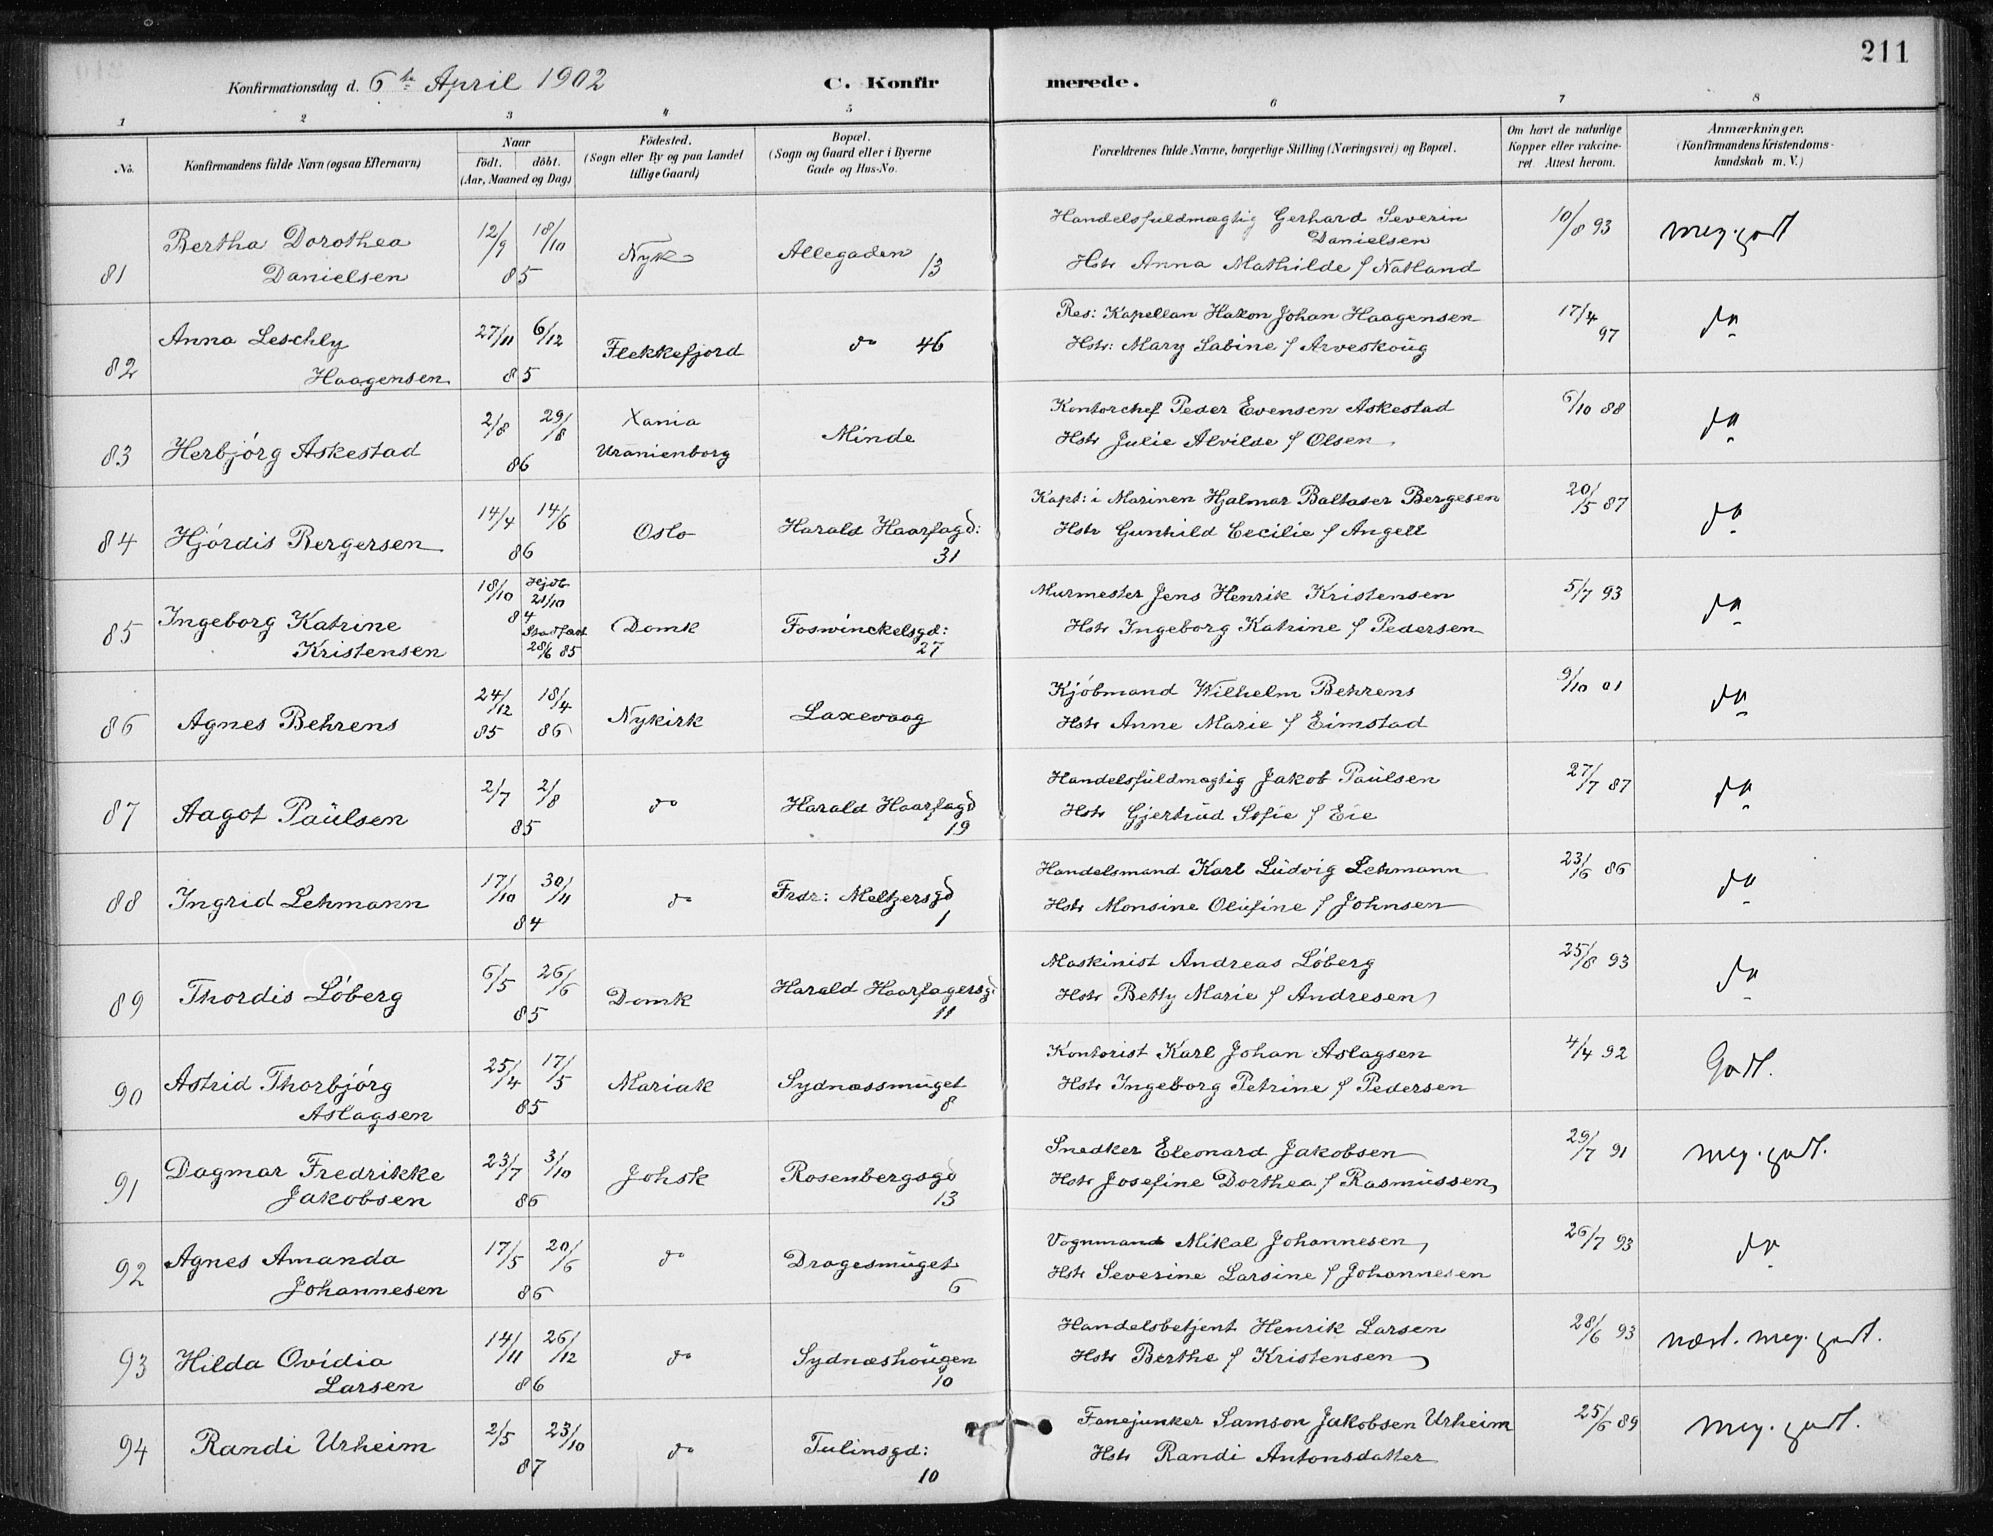 211
Konfirmationsdag d. 6te April 1902 C. Konfirmerede.
1 2 3 4 5 6 7 8
No. Konfirmandens fulde Navn (ogsaa Efternavn) Naar født. døbt. (Aar, Maaned og Dag) Fødested. (Sogn eller By og paa Landet tillige Gaard) Bopæl. (Sogn og Gaard eller i Byerne Gade og Hus-No. Forældrenes fulde Navne, borgerlige Stilling (Næringsvei) og Bopæl. Om havt de naturlige Kopper eller vakcineret. Attest herom. Anmærkninger. (Konfirmandens Kristendomskundskab m. V.)
81 Bertha Dorothea Danielsen 12/9 18/10 85 Nyk Allegaden 13 Handelsfuldmægtig Gerhard Severin Danielsen
Hstr Anna Mathilde f Natland 10/8 93 meg. godt
82 Anna Leschly Haagensen 27/11 6/12 85 Flekkefjord do 46 Res: Kapellan Hakon Johan Haagensen
Hstr: Mary Sabine f Arveskoug 17/4 97 do
83 Herbjørg Askestad 2/8 29/8 86 Xania Uranienborg Minde Kontorchef Peder Evensen Askestad
Hstr Julie Alvilde f Olsen 6/10 88 do
84 Hjørdis Bergersen 14/4 14/6 86 Oslo Harald Haarfagd: 31 Kapt: i Marinen Hjalmar Baltaser Bergesen
Hstr Gunhild Cecilie f Angell 20/5 87 do
85 Ingeborg Katrine Kristensen 18/10 Hjdb 21/10 84 Stadfæst 28/6 85 Domk Foswinckelsgd: 27 Murmester Jens Henrik Kristensen
Hstr Ingeborg Katrine f Pedersen 5/7 93 do
86 Agnes Behrens 24/12 85 18/4 86 Nykirk Laxevaag Kjøbmand Wilhelm Behrens
Hstr Anne Marie f Eimstad 9/10 01 do
87 Aagot Paulsen 2/7 2/8 85 do Harald Haarfagd 19 Handelsfuldmægtig Jakob Paulsen
Hstr Gjertrud Sofie f Eie 27/7 87 do
88 Ingrid Lehmann 17/10 30/11 84 do Fredr: Meltzersgd 1 Handelsmand Karl Ludvig Lehmann
Hstr Monsine Olufine f Johnsen 23/6 86 do
89 Thordis Løberg 6/5 26/6 85 Domk Harald Haarfagersgd 11 Maskinist Andreas Løberg
Hstr Betty Marie f Andresen 25/8 93 do
90 Astrid Thorbjørg Aslagsen 25/4 17/5 85 Mariak Sydnæssmuget 8 Kontorist Karl Johan Aslagsen
Hstr Ingeborg Petrine f Pedersen 4/4 92 Godt.
91 Dagmar Fredrikke Jakobsen 23/7 3/10 86 Johsk Rosenbergsgd 13 Snedker Eleonard Jakobsen
Hstr Josefine Dorthea f Rasmussen 29/7 91 meg. godt.
92 Agnes Amanda Johannesen 17/5 20/6 86 do Dragesmuget 6 Vognmand Mikal Johannesen
Hstr Severine Larsine f Johannesen 26/7 93 do
93 Hilda Ovidia Larsen 14/11 26/12 86 do Sydnæshougen 10 Handelsbetjent Henrik Larsen
Hstr Berthe f Kristensen 28/6 93 næst. meg. godt.
94 Randi Urheim 2/5 23/10 87 do Tulinsgd: 10 Fanejunker Samson Jakobsen Urheim
Hstr Randi Antonsdatter 25/6 89 meg. godt.